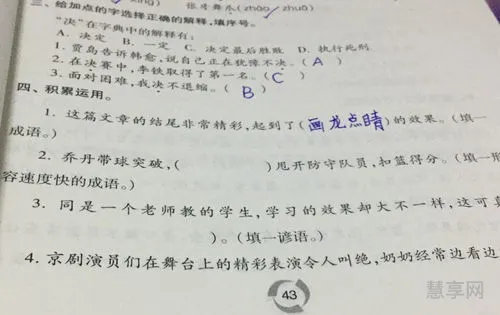 张牙舞爪(zhǎo√ zhuǎ)
三、给加点的字选择正确的解释,填序号。
“决”在字典中的解释有:
A. 决定 B. 一定 C. 决定最后胜败 D. 执行死刑
1. 贾岛告诉韩愈,说自己正在犹豫不决。(A)
2. 在决赛中,李铁取得了第一名。(C)
3. 面对困难,我决不退缩。(B)
四、积累运用。
1. 这篇文章的结尾非常精彩,起到了(画龙点睛)的效果。(填一
成语。)
2. 乔丹带球突破,( )甩开防守队员,扣篮得分。(填一形
容速度快的成语。)
3. 同是一个老师教的学生,学习的效果却大不一样,这可真
)。(填一谚语。)
4. 京剧演员们在舞台上的精彩表演令人叫绝,奶奶经常边看边
43
慧享网